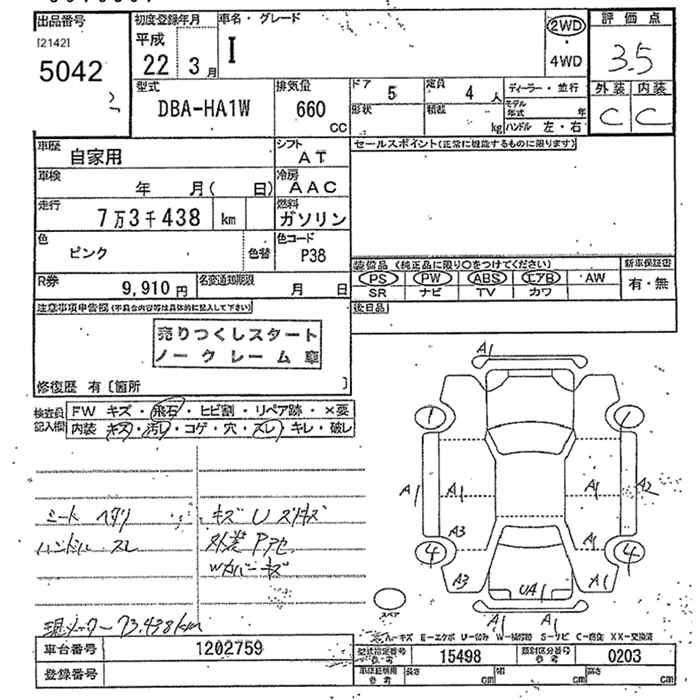 出品番号
[2142]
5042
初度登録年月
平成
22 3月
車名・グレード
I
2WD
・
4WD
評価点
3.5
外装 内装
C C
型式
DBA-HA1W
排気量
660
CC
ドア 5
定員 4 人
形状
積載 kg
ディーラー・並行
モデル年式 年
ハンドル 左・右
車歴
自家用
シフト
AT
セールスポイント(正常に機能するものに限ります)
車検
年 月( 日)
冷房
AAC
走行
7万3千438 km
燃料
ガソリン
色
ピンク
色替
色コード
P38
装備品(純正品に限り○をつけてください)
新車保証書
PS PW ABS エアB AW
SR ナビ TV カワ
有・無
R券
9,910円
名変通知期限
月 日
後日品
注意事項申告欄(不具合内容等は具体的に記入して下さい)
売りつくしスタート
ノークレーム車
修復歴 有〔箇所 〕
検査員記入欄
FW キズ・飛石・ヒビ割・リペア跡・×要
内装 キズ・汚レ・コゲ・穴・スレ・キレ・破レ
シート ヘタリ
ハンドル スレ
キズ U スリキズ
外装 Pアセ
Wカバーキズ
現メーター 73.438km
A1
1
1
A1
A1
A1
A2
A3
4
4
A3
UA1
A1
A1
スペア
A-キズ E-エクボ U-凹み W-補修跡 S-サビ C-腐食 XX-交換済
車台番号
1202759
型式指定番号
参考
15498
類別区分番号
参考
0203
登録番号
車体証明用
参考
長さ cm
幅 cm
高さ cm